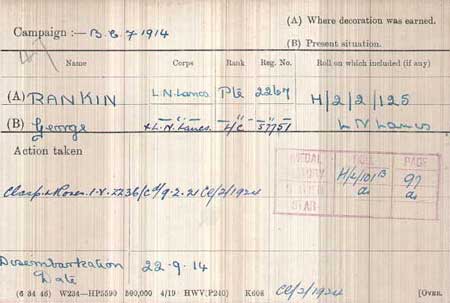 Campaign :— B.E.F 1914
(A) Where decoration was earned.
(B) Present situation.
Name Corps Rank Reg. No. Roll on which included (if any)
(A) RANKIN L.N.Lancs Pte 2267 H/2/2/125
(B) George L.N.Lancs. 57751 L N Lancs
Action taken
MEDAL ROLL PAGE
VICTORY H/2/101 B 97
STAR
Clasp & Roses 9.2.21 Cl/2/1924
Disembarkation 22-9-14
Date
(6 34 46) W234—HP5590 500,000 4/19 HWV(P240) K608 Cl/2/1924 [OVER.